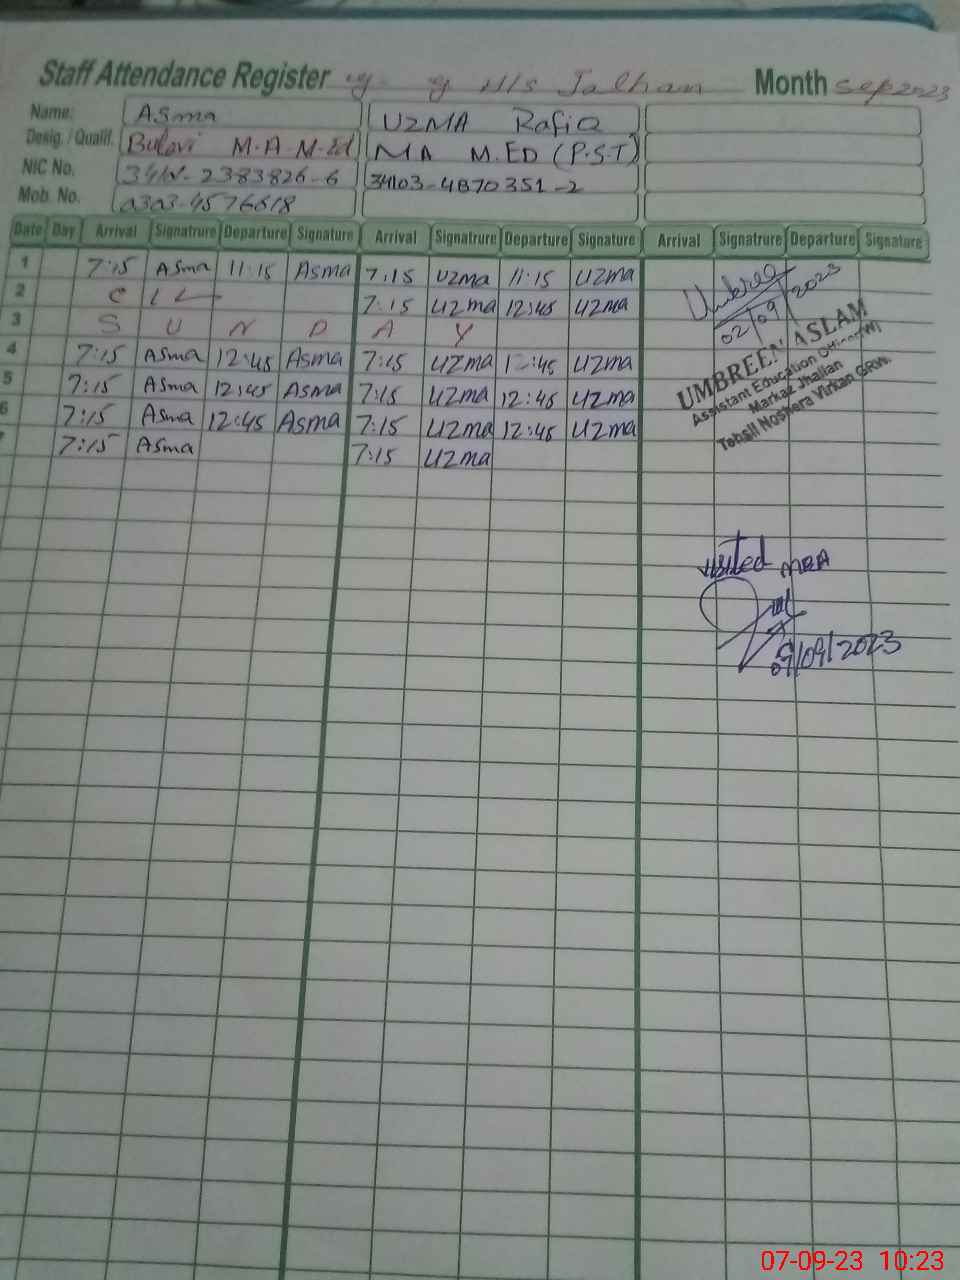 Staff Attendance Register H/s Jalham Month Sep 2023
Name: Asma UZMA RafiQ
Desig. / Qualif. M.A-M-Ed MA M.ED (P.S.T)
NIC No. 34103-4870351-2
Mob. No. 0303-4576618
Date Day Arrival Signatrure Departure Signature Arrival Signatrure Departure Signature Arrival Signatrure Departure Signature
1 7:15 Asma 11:15 Asma 7:15 Uzma 11:15 Uzma
2 C L 7:15 Uzma 12:45 Uzma
3 S U N D A Y
4 7:15 Asma 12:45 Asma 7:15 Uzma 12:45 Uzma
5 7:15 Asma 12:45 Asma 7:15 Uzma 12:45 Uzma
6 7:15 Asma 12:45 Asma 7:15 Uzma 12:45 Uzma
7 7:15 Asma 7:15 Uzma
Umbreen
02/09/2023
UMBREEN ASLAM
Assistant Education Officer (W)
Markaz Jhallan
Tehsil Noshera Virkan GRW.
visited MEA
07/09/2023
07-09-23 10:23